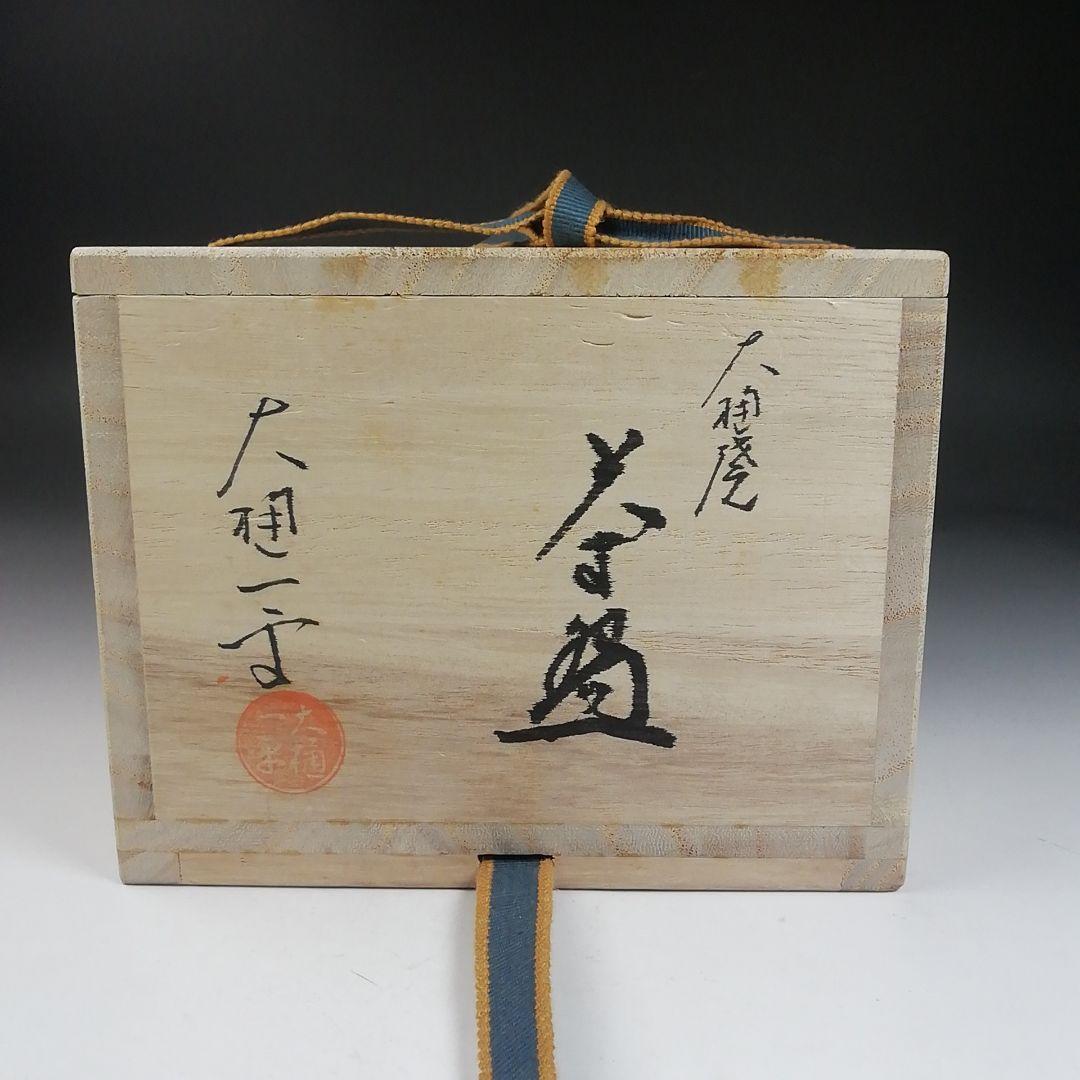 大樋焼
茶盌
大樋一
大樋
一